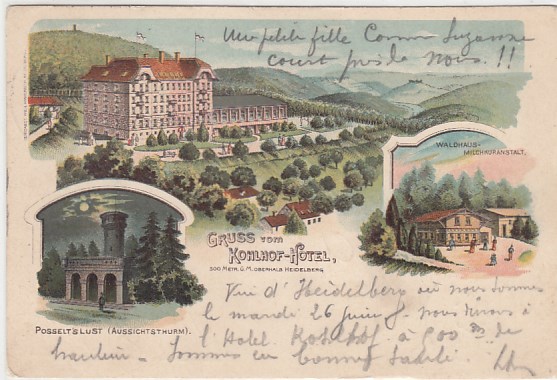 Une petite fille comme Suzanne
court près de nous !!
WALDHAUS-
MILCHKURANSTALT.
GRUSS vom
KOHLHOF-HOTEL,
500 METR. Ü. M. OBERHALB HEIDELBERG
POSSELT'S LUST (AUSSICHTSTHURM).
Vue d'Heidelberg où nous sommes
le mardi 26 juin & nous
l'Hotel Kohlhof à 500 m de
hauteur - Sommes en bonne santé.